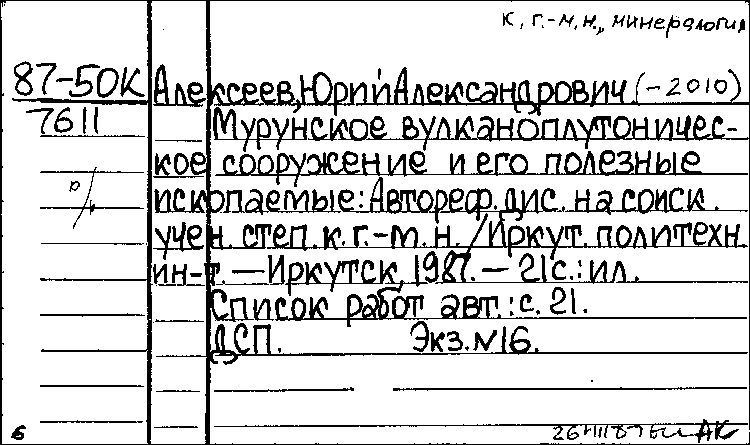 к. г.-м. н., минералогия
87-50К Алексеев, Юрий Александрович (-2010)
7611 Мурунское вулканоплутоничес-
кое сооружение и его полезные
ископаемые: Автореф. дис. на соиск.
учен. степ. к. г.-м. н. / Иркут. политехн.
ин-т. — Иркутск, 1987. — 21 с.: ил.
Список работ авт.: с. 21.
ДСП. Экз. №16.
6 АК